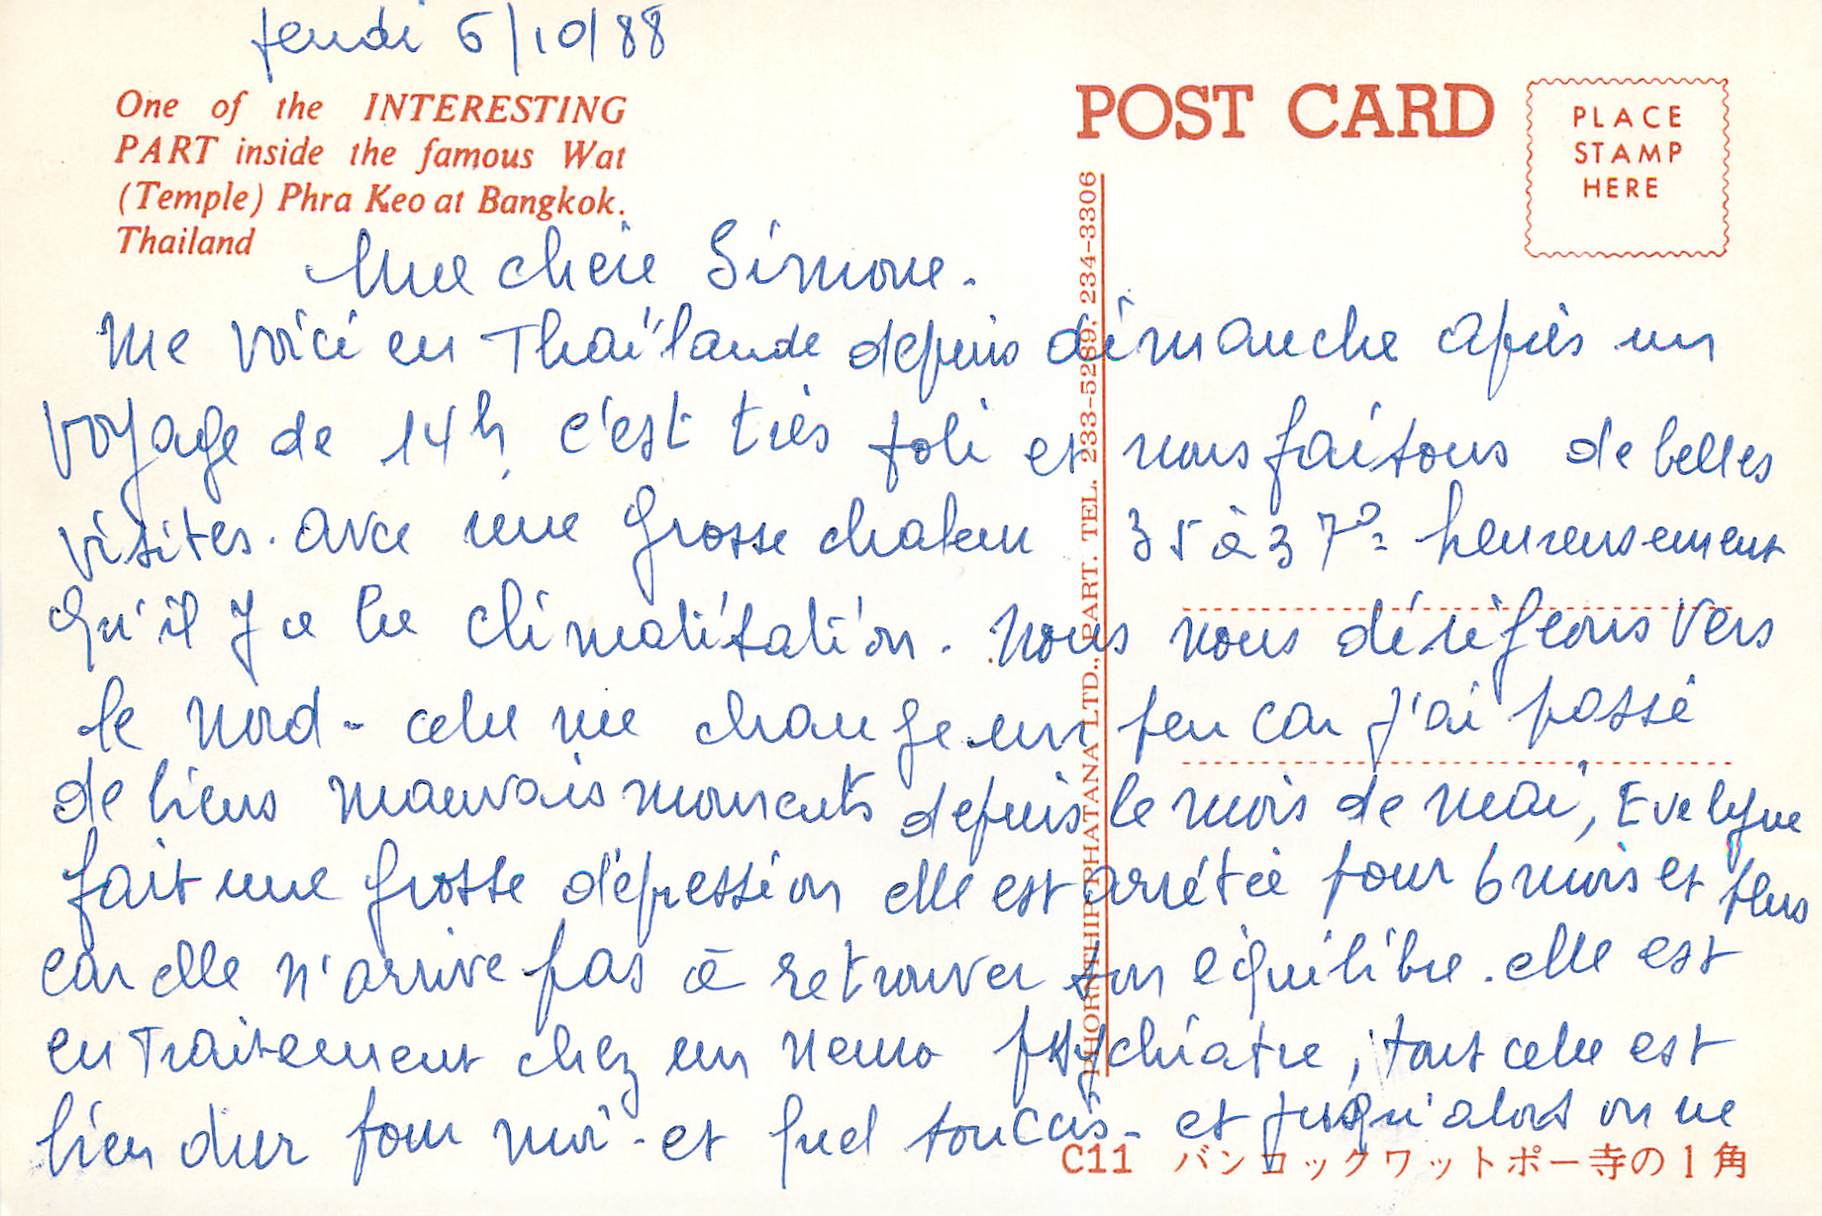 Jeudi 6/10/88
One of the INTERESTING
PART inside the famous Wat
(Temple) Phra Keo at Bangkok.
Thailand
POST CARD
PLACE
STAMP
HERE
PHORNTHIP PHATANA LTD., PART. TEL. 233-5289, 234-3306
Ma chère Simone.
Me voici en Thaïlande depuis dimanche après un
voyage de 14h c'est très joli et nous faisons de belles
visites. avec une grosse chaleur 35 à 37° heureusement
qu'il y a la climatisation. Nous nous dirigeons vers
le Nord - cela me change un peu car j'ai passé
de biens mauvais moments depuis le mois de mai, Evelyne
fait une grosse dépression elle est arrêtée pour 6 mois et plus
car elle n'arrive pas à retrouver son équilibre. elle est
en Traitement chez un neuro psychiatre, tout cela est
bien dur pour moi - et quel soucis - et jusqu'alors on ne
C11 バンコックワットポー寺の1角